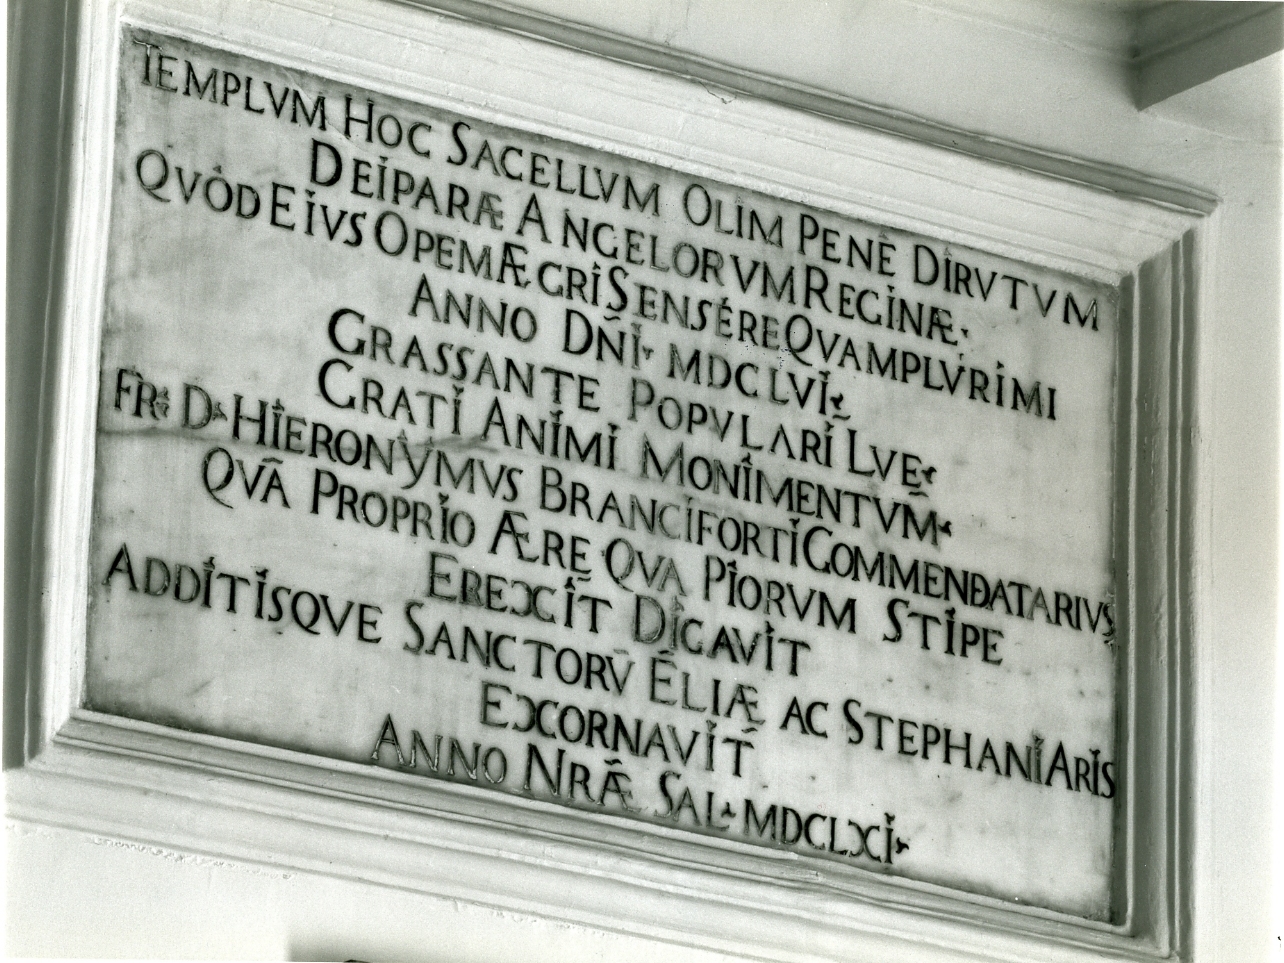 TEMPLVM HOC SACELLVM OLIM PENÈ DIRVTVM
DEIPARÆ ANGELORVM REGINÆ.
QVÒD EIVS OPEM ÆGRI SENSÉRE QVAMPLVRIMI
ANNO DÑI. MDCLVI.
GRASSANTE POPVLARI LVE.
GRATI ANIMI MONIMENTVM.
FR: D. HIERONYMVS BRANCIFORTI COMMENDATARIVS
QVĀ PROPRIO ÆRE QVA PIORVM STIPE
EREXIT DICAVIT
ADDITISQVE SANCTORV̄ ELIÆ AC STEPHANI ARIS
EXCORNAVIT
ANNO NRÆ SAL. MDCLXI.